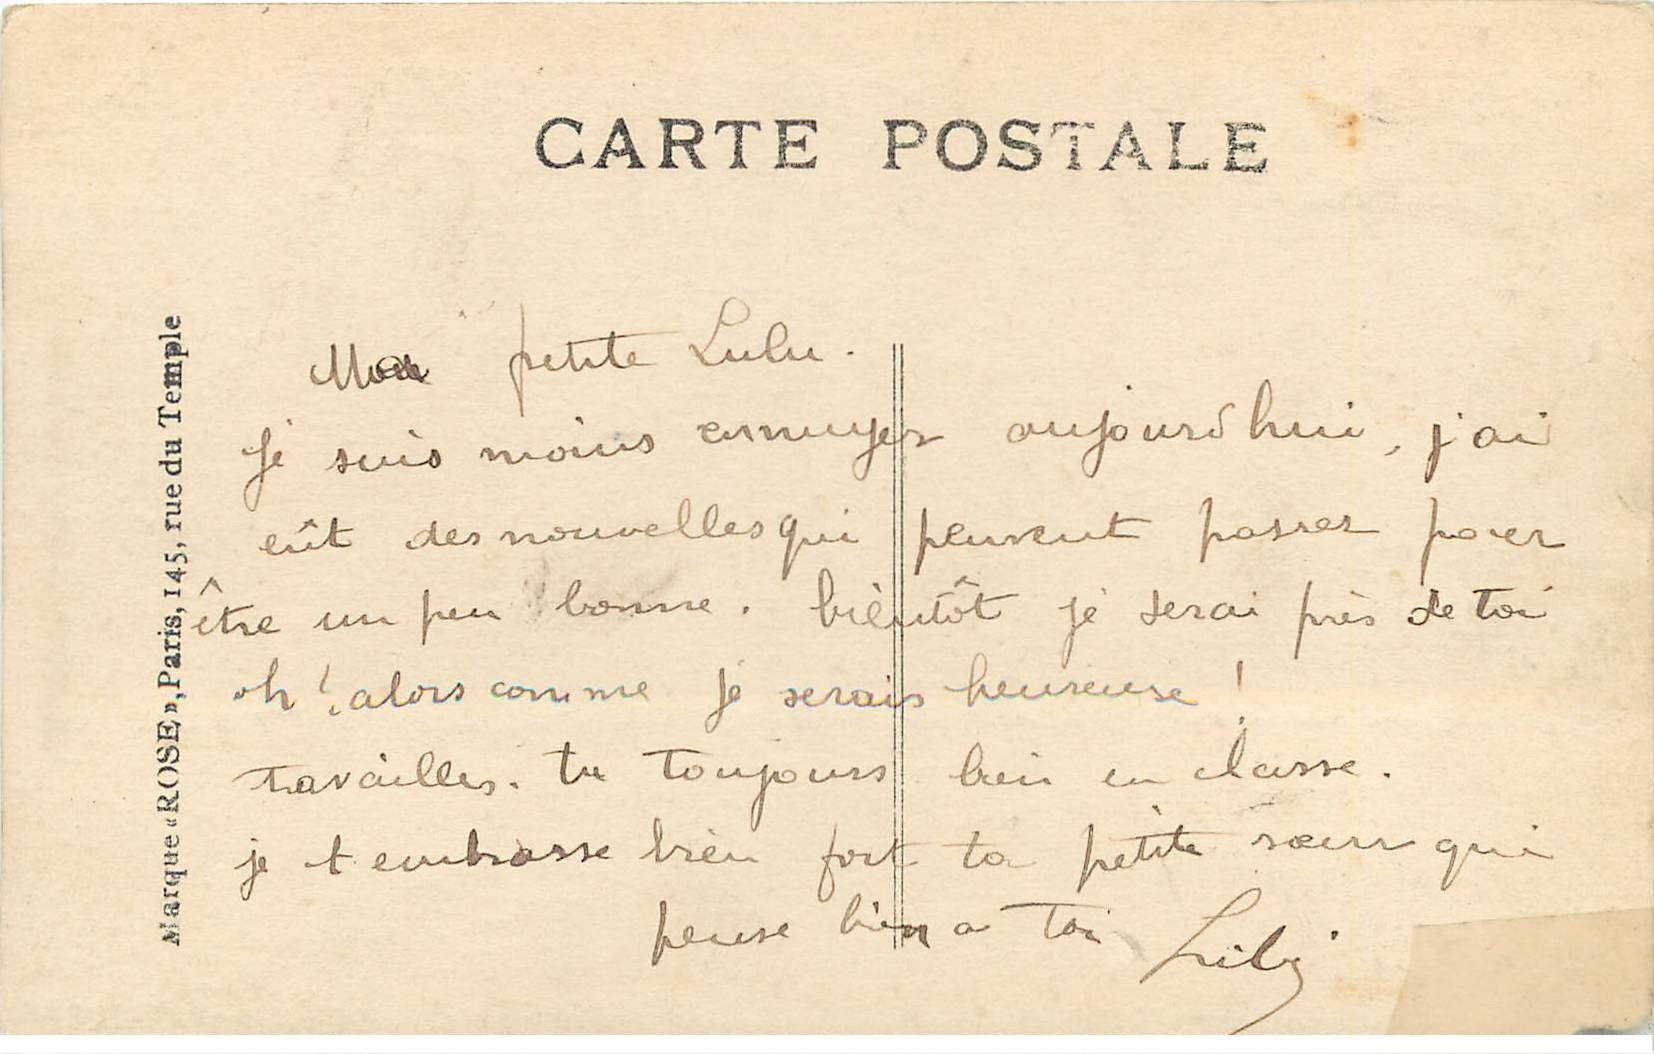 CARTE POSTALE
Marque «ROSE», Paris, 145, rue du Temple
Ma petite Lulu.
Je suis moins ennuyer aujourd'hui, j'ai
eût des nouvelles qui peuvent passer pour
être un peu bonne. bientôt je serai près de toi
oh! alors comme je serais heureuse!
travailles. tu toujours bien en classe.
je t embrasse bien fort ta petite sœur qui
pense bien a toi Lily